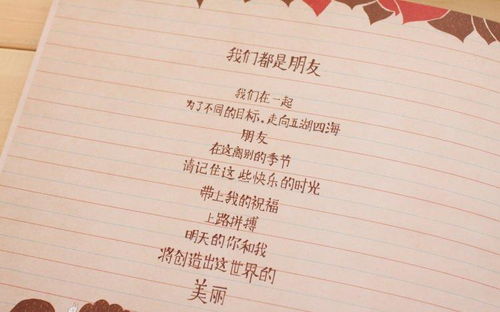 我们都是朋友
我们在一起
为了不同的目标，走向五湖四海
朋友
在这离别的季节
请记住这些快乐的时光
带上我的祝福
上路拼搏
明天的你和我
将创造出这世界的
美丽